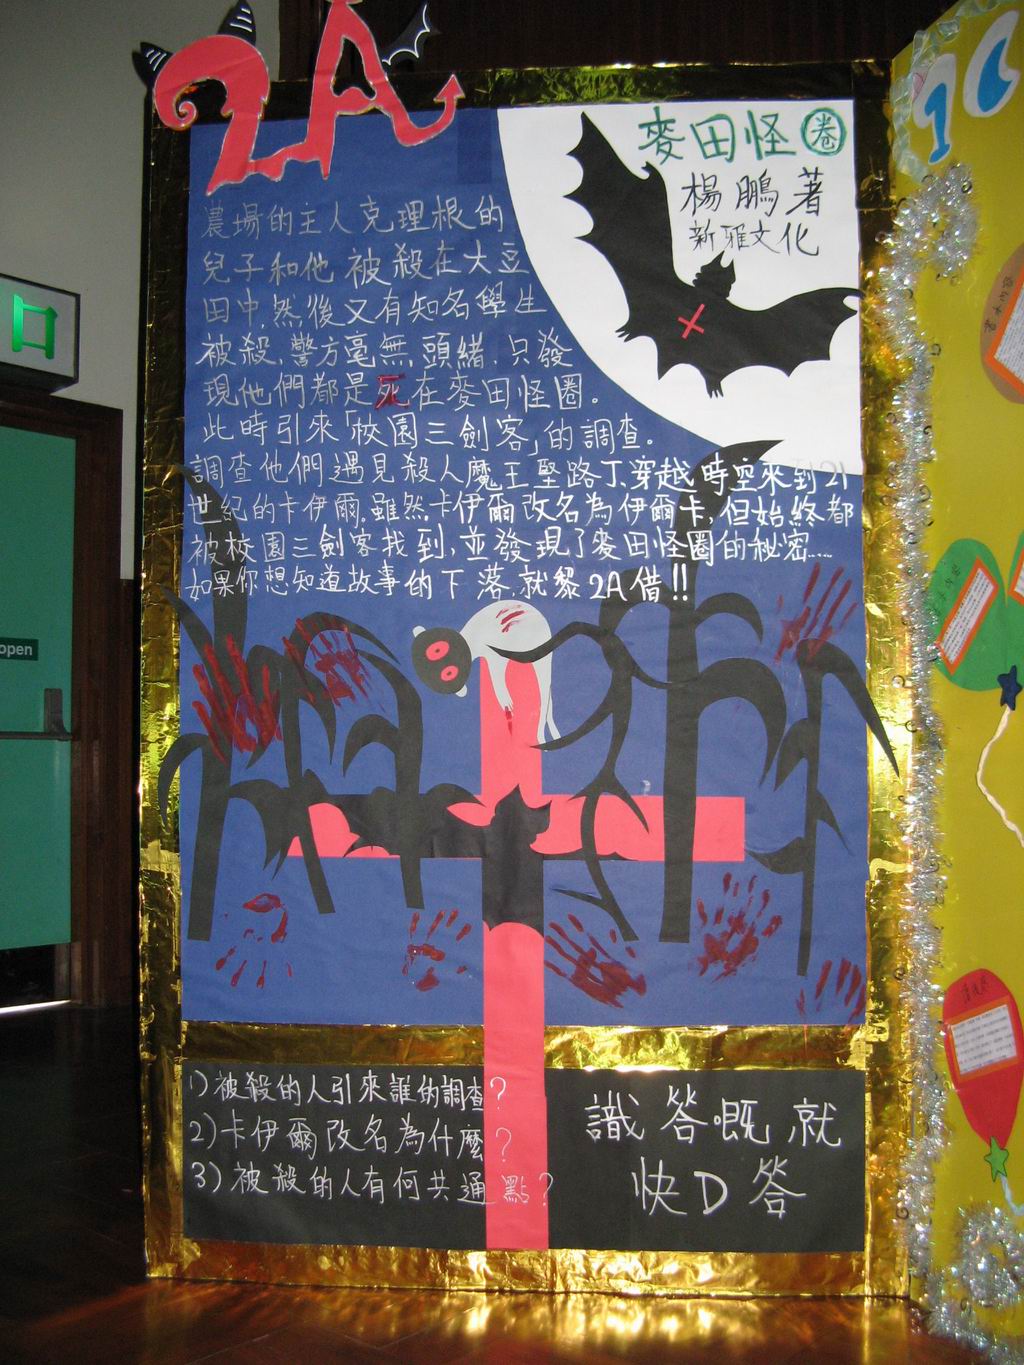 2A
麥田怪㊎
楊鵬著
新雅文化
農場的主人克理根的
兒子和他被殺在大豆
田中,然後又有知名學生
被殺,警方毫無頭緒,只發
現他們都是死在麥田怪圈。
此時引來「校園三劍客」的調查。
調查他們遇見殺人魔王堅路丁,穿越時空來到21
世紀的卡伊爾。雖然卡伊爾改名為伊爾卡,但始終都
被校園三劍客找到,並發現了麥田怪圈的秘密......
如果你想知道故事的下落,就黎2A借!!
1)被殺的人引來誰的調查?
2)卡伊爾改名為什麼?
3)被殺的人有何共通點?
識答嘅就
快D答
1C
open